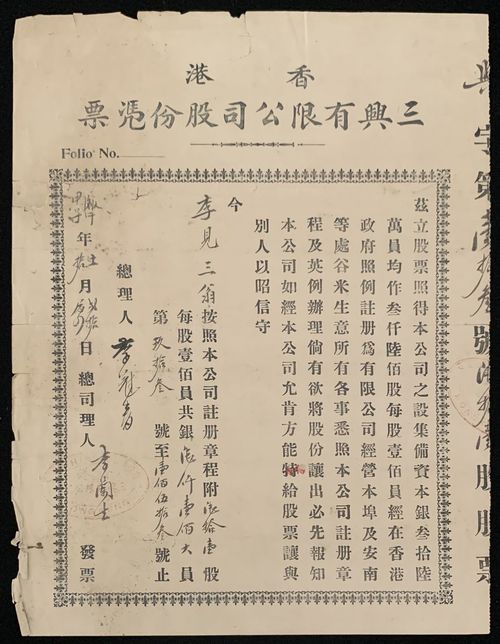 香港
三興有限公司股份憑票
Folio No.
興字第壹拾叁號
股股票
茲立股票照得本公司之設集備資本銀叁拾陸
萬員均作叁仟陸佰股每股壹佰員經在香港
政府照例註册爲有限公司經營本埠及安南
等處谷米生意所有各事悉照本公司註册章
程及英例辦理倘有欲將股份讓出必先報知
本公司如經本公司允肯方能特給股票讓與
別人以昭信守
今
李見三翁按照本公司註册章程附陸拾壹股
每股壹佰員共銀陸仟壹佰大員
第玖拾叁號至壹佰伍拾叁號止
總理人李冠春
總司理人
發票
甲子年十二月日